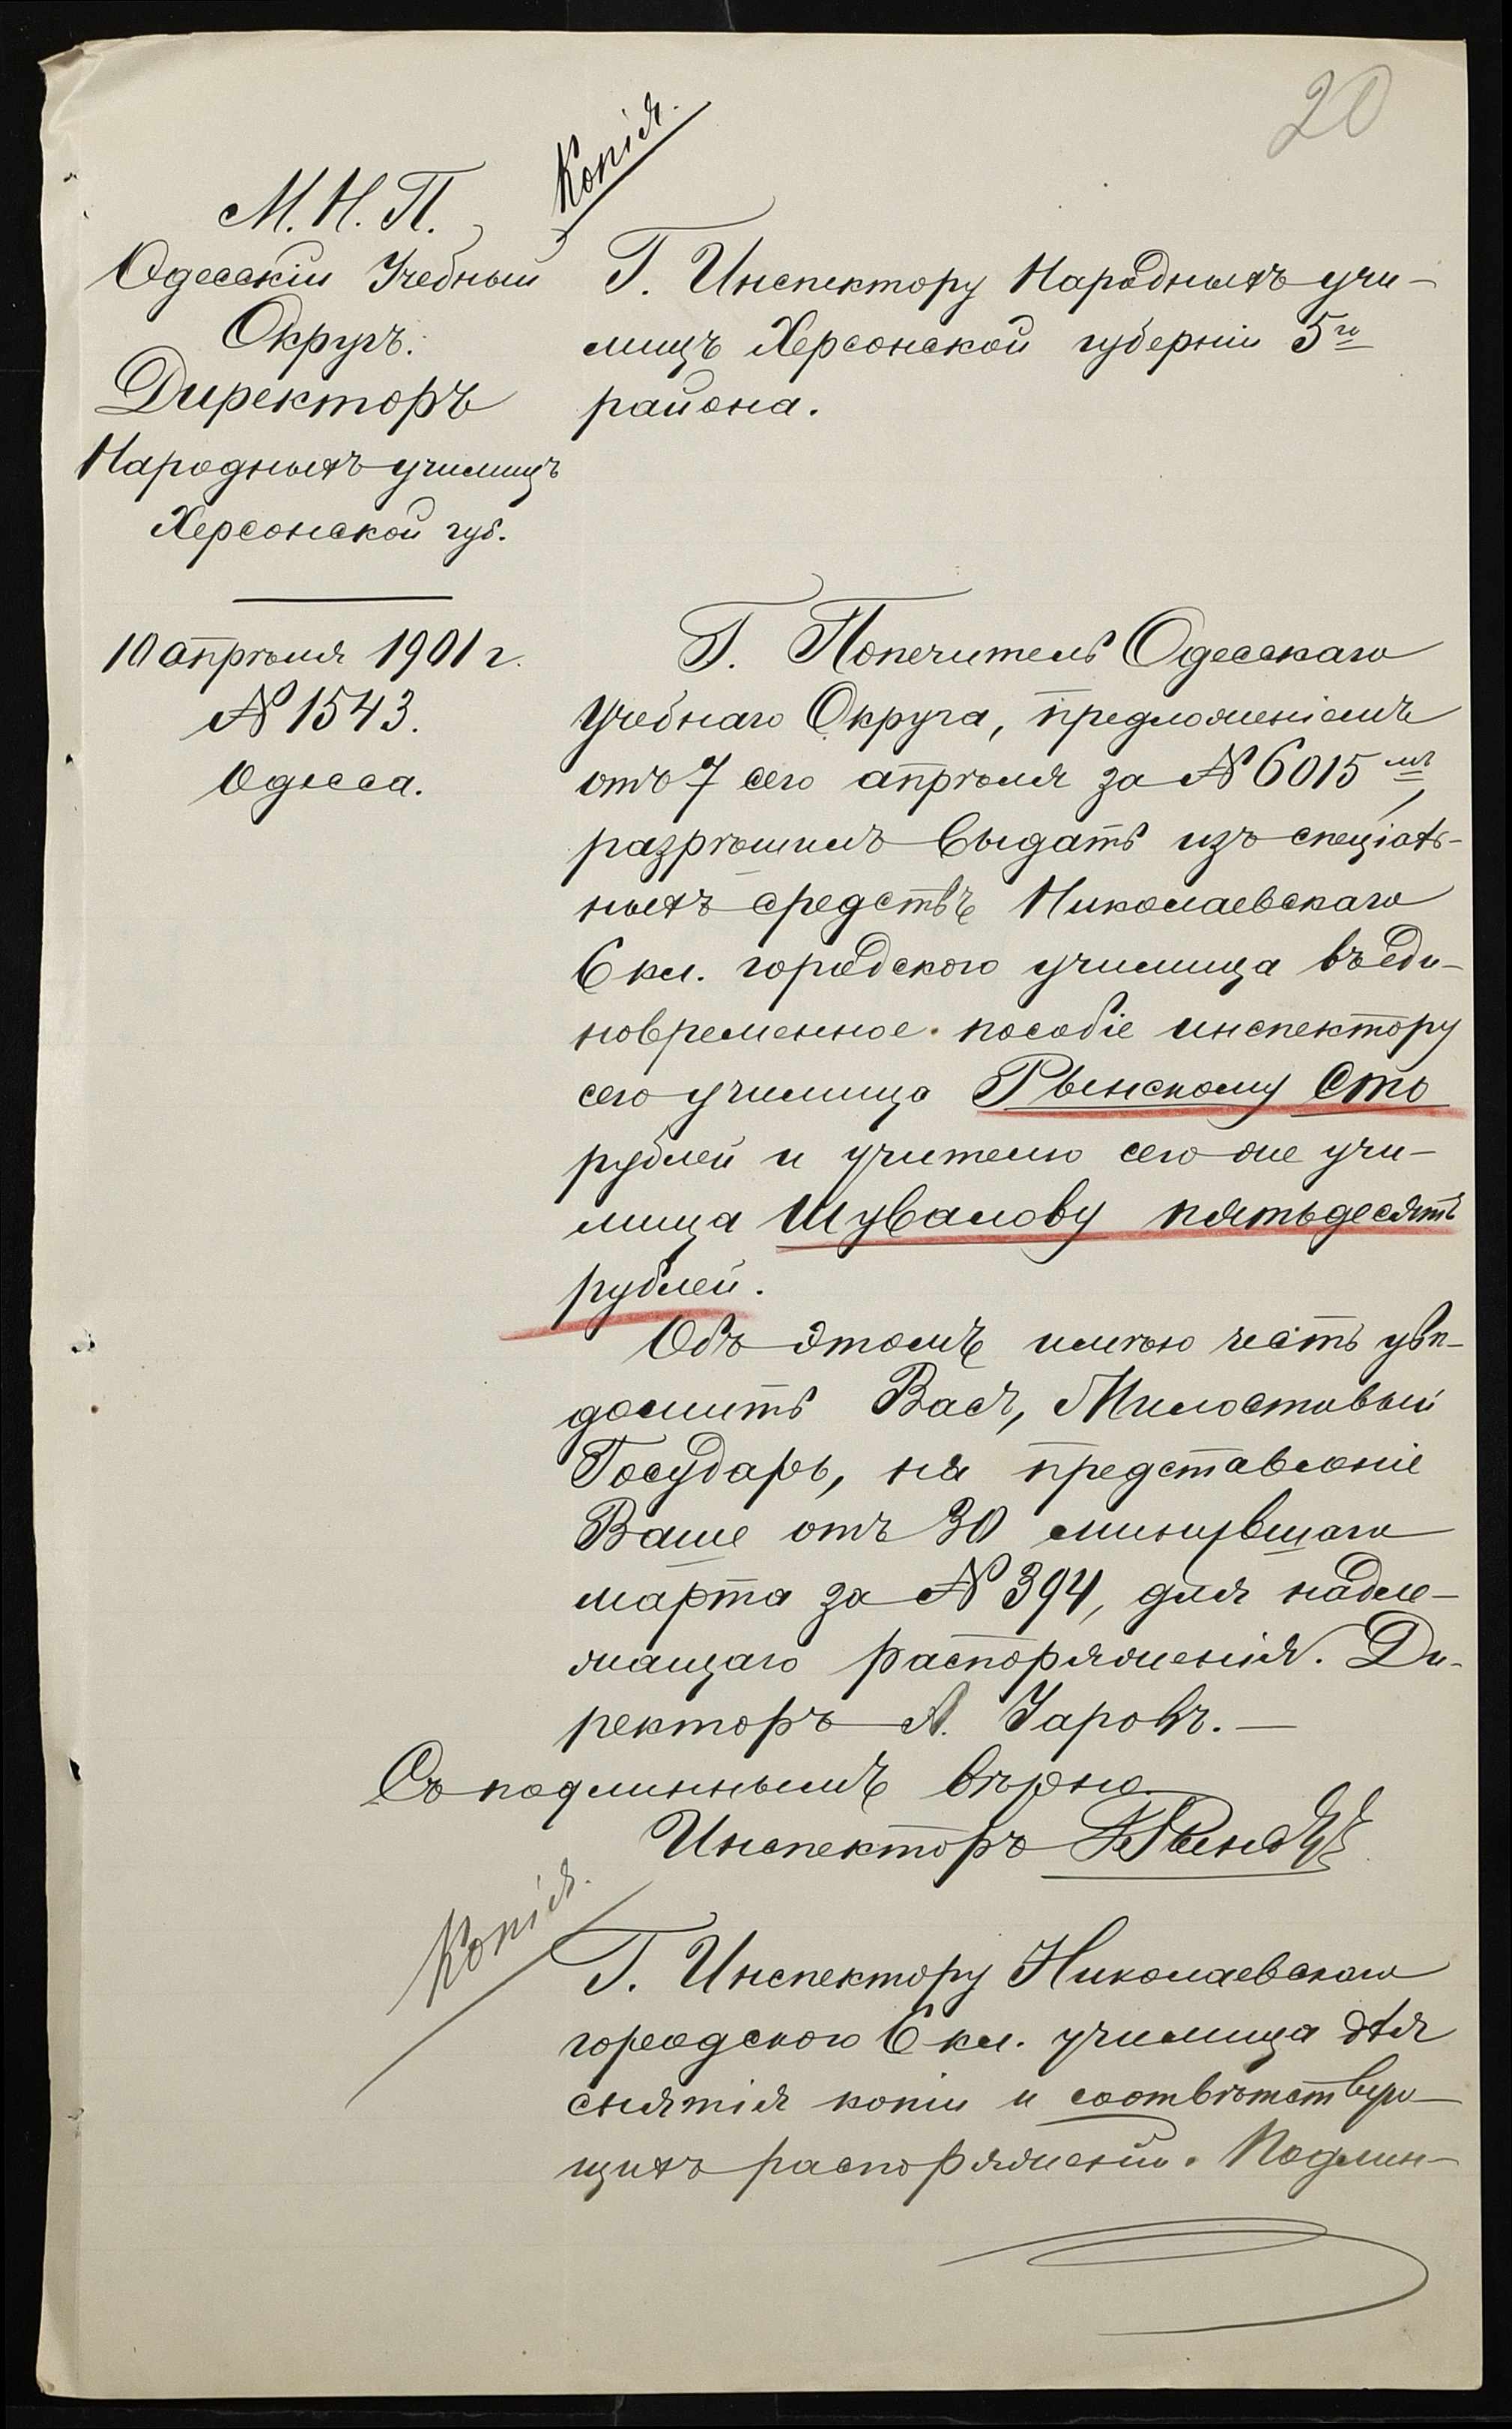 20
Копія.
М. Н. П.
Одесскій Учебный
Округъ.
Директоръ
Народныхъ училищъ
Херсонской губ.
10 апрѣля 1901 г.
№ 1543.
Одесса.
Г. Инспектору Народныхъ учи-
лищъ Херсонской губерніи 5го
района.
Г. Попечитель Одесскаго
Учебнаго Округа, предложеніемъ
отъ 7 сего апрѣля за № 6015мъ,
разрѣшилъ выдать изъ спеціаль-
ныхъ средствъ Николаевскаго
6 кл. городского училища въ еди-
новременное пособіе инспектору
сего училища Рѣвскому сто
рублей и учителю сего же учи-
лища Шувалову пятьдесятъ
рублей.
Объ этомъ имѣю честь увѣ-
домить Васъ, Милостивый
Государь, на представленіе
Ваше отъ 30 минувшаго
марта за № 394, для надле-
жащаго распоряженія. Ди-
ректоръ А. Уаровъ.—
Съ подлиннымъ вѣрно
Инспекторъ
Копія.
Г. Инспектору Николаевскаго
городского 6 кл. училища для
снятія копіи и соотвѣтствую-
щихъ распоряженій. Подлин-